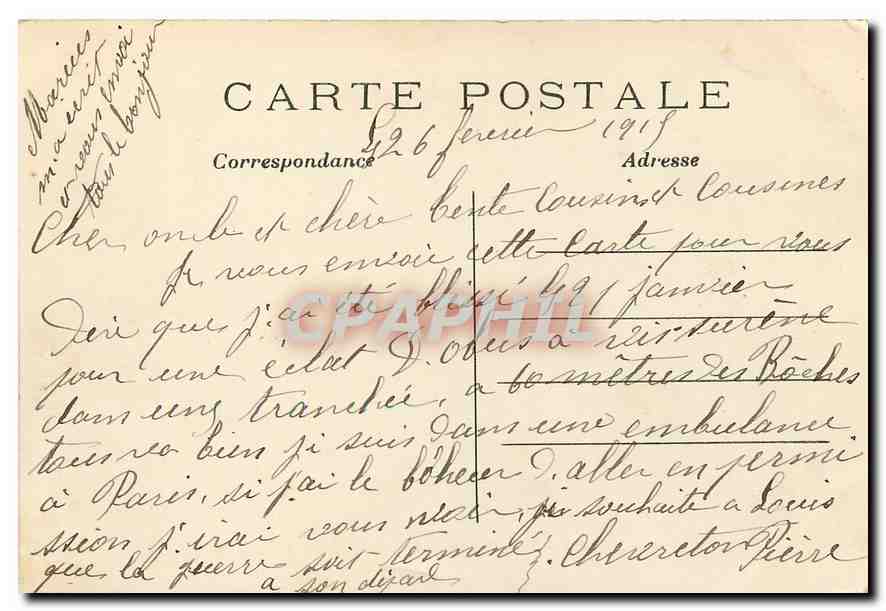 Marius
m'a écrit
et vous envoi
tous le bonjour
CARTE POSTALE
Le 26 fevrier 1915
Correspondance
Adresse
Cher oncle et chère tente Cousins et Cousines
je vous envoie cette carte pour vous
dire que j'ai été blissé le 21 janvier
pour une éclat d'obus à
dans une tranchée, a 60 mètres des Bôches
tous va bien je suis dans une embulance
à Paris, si j'ai le bôheur d'aller en permi
ssion j'irai vous voir, je souhaite a Louis
que la guerre soit terminé
a son départ
Chevreton Pierre
CPAPHIL